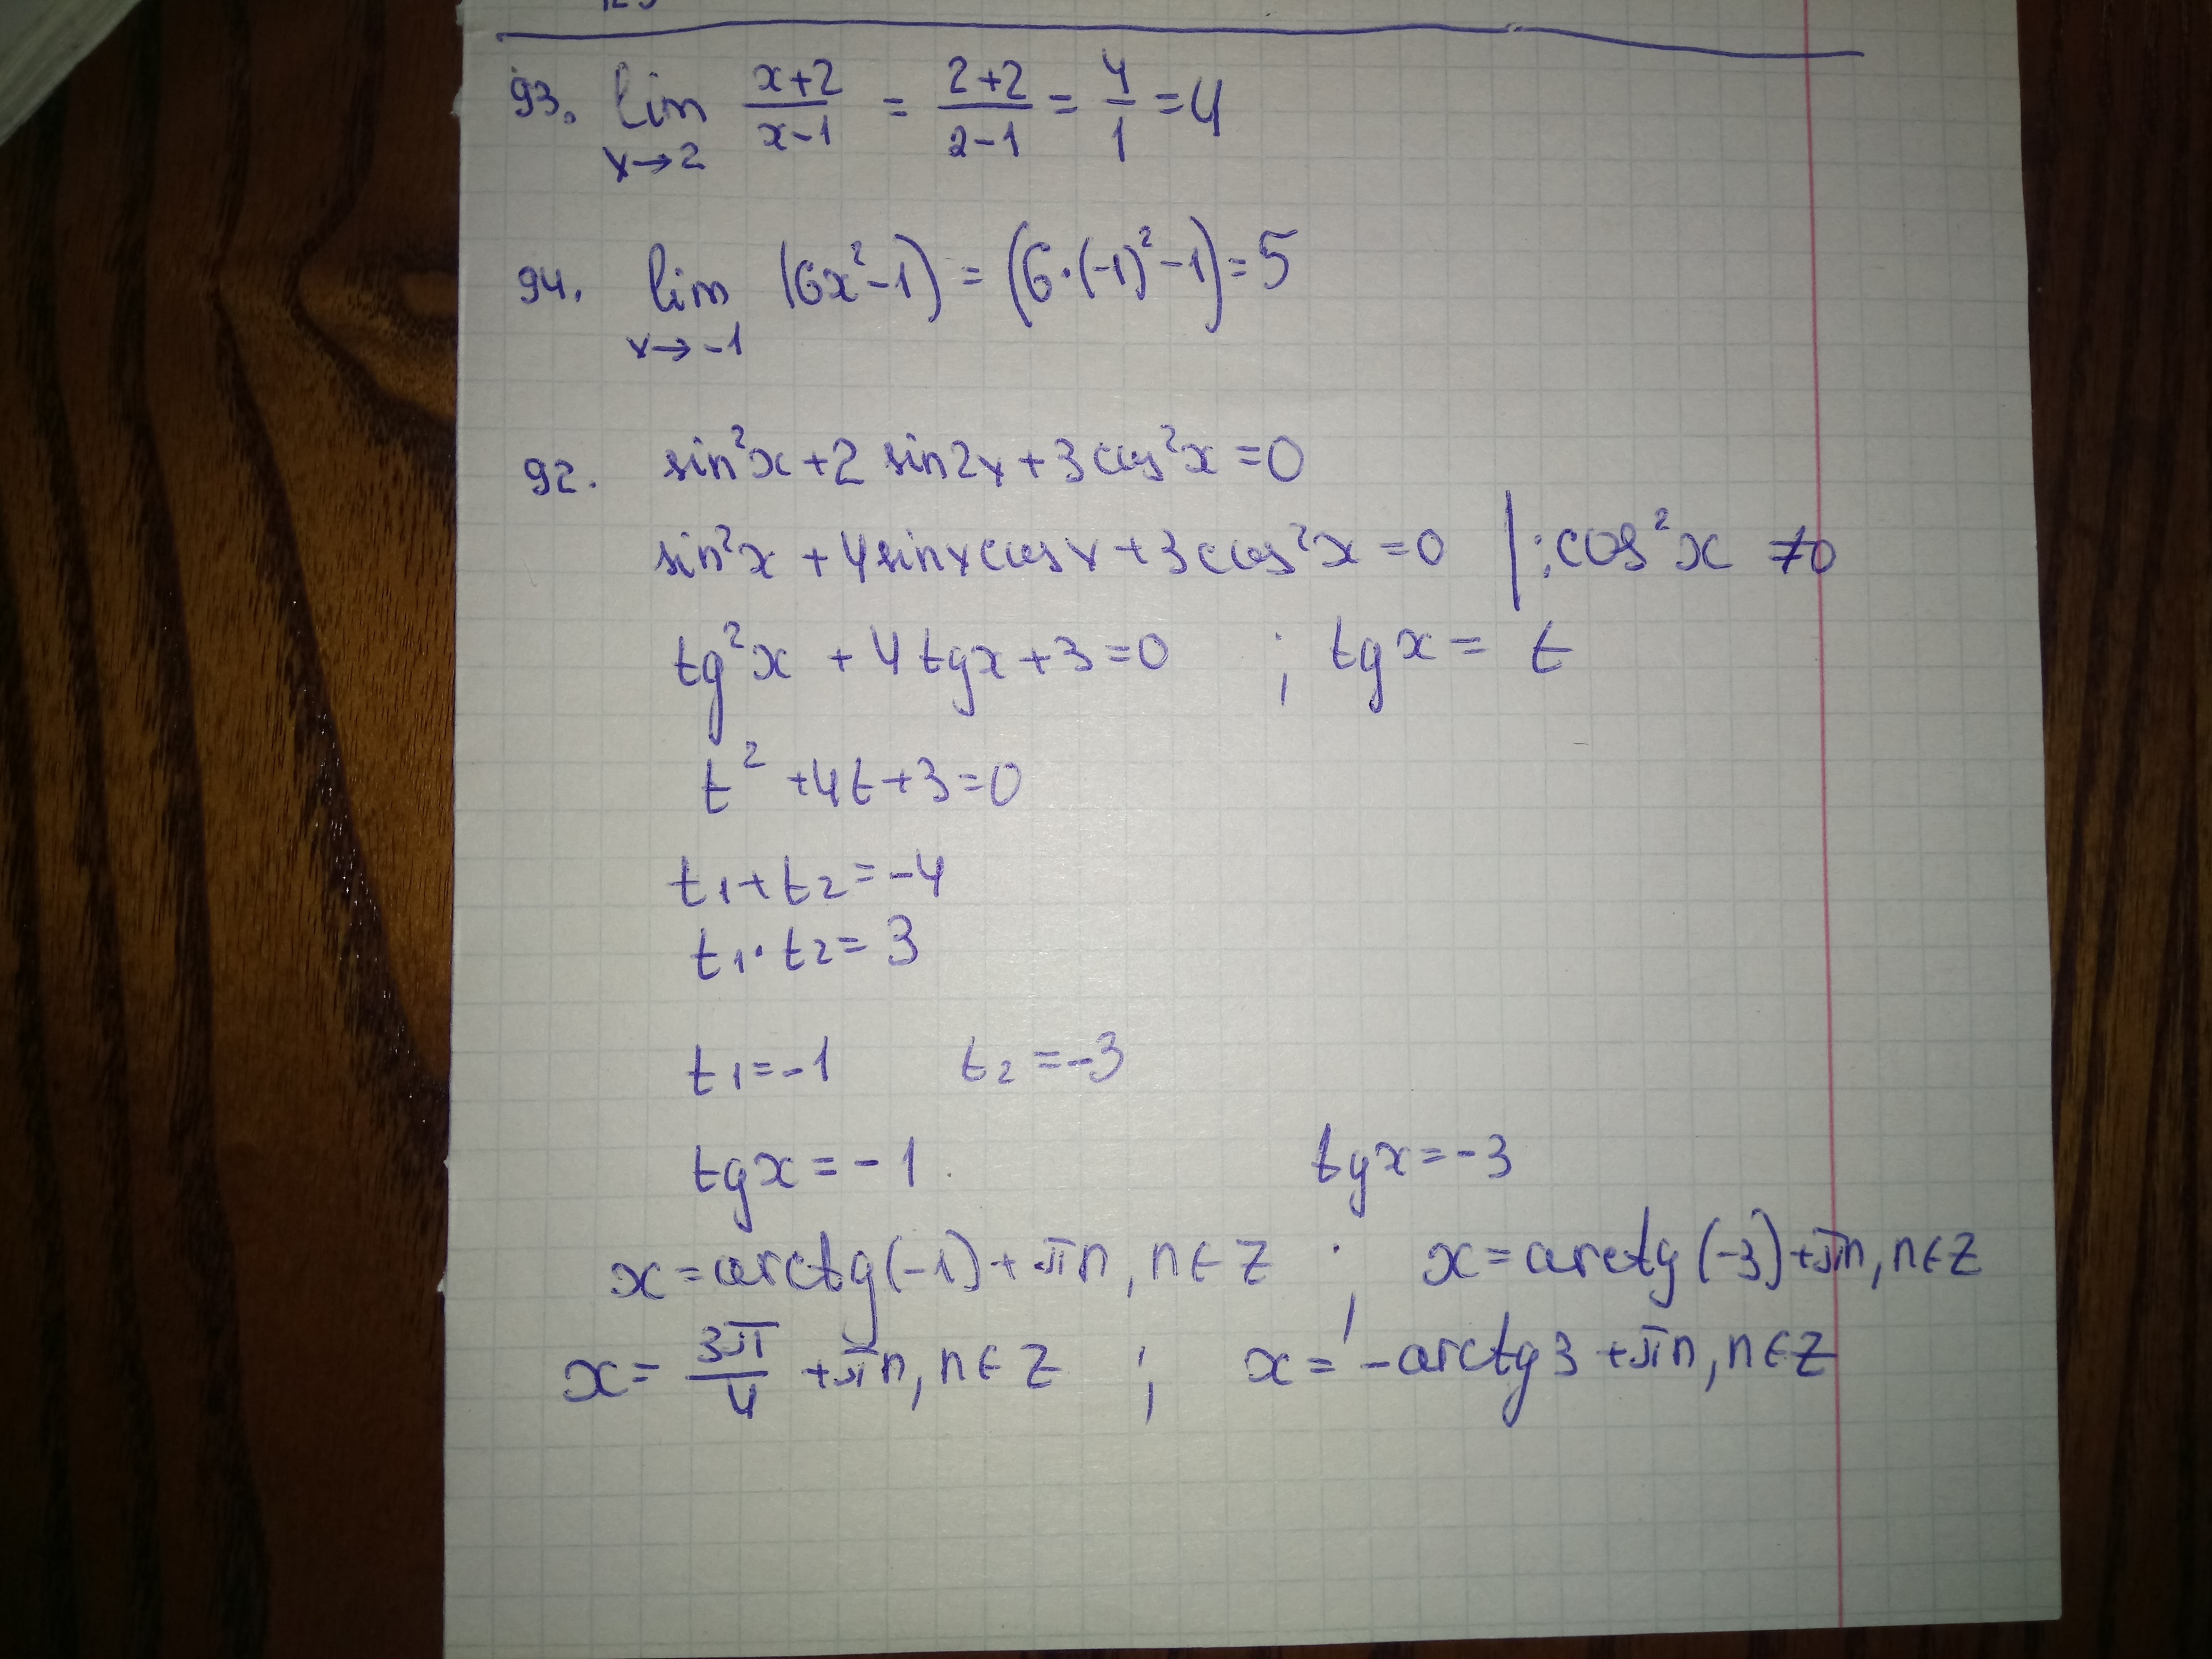 93. lim x→2 (x+2)/(x-1) = (2+2)/(2-1) = 4/1 = 4
94. lim x→-1 (6x²-1) = (6·(-1)²-1) = 5
92. sin²x + 2 sin2x + 3cos²x = 0
sin²x + 4sinxcosx + 3cos²x = 0 | :cos²x ≠0
tg²x + 4tgx + 3 = 0 ; tgx = t
t² + 4t + 3 = 0
t₁ + t₂ = -4
t₁ · t₂ = 3
t₁ = -1 t₂ = -3
tgx = -1 tgx = -3
x = arctg(-1) + πn, n∈Z ; x = arctg(-3) + πn, n∈Z
x = 3π/4 + πn, n∈Z ; x = -arctg3 + πn, n∈Z